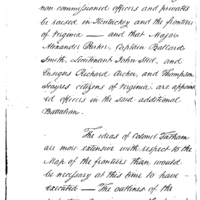 non commissioned officers and privates
be raised in Kentuckey and the frontiers
of Virginia — and that Major
Alexander Parker, Captain Ballard
Smith, Lieutenant John Steel, and
Ensigns Richard Archer, and Thompson
Sayres citizens of Virginia are appoint
ed officers in the said additional
Battalion.
The ideas of Colonel Tatham
are more extensive with respect to the
Map of the frontiers than would
be necessary at this time to have
executed — The outlines of the